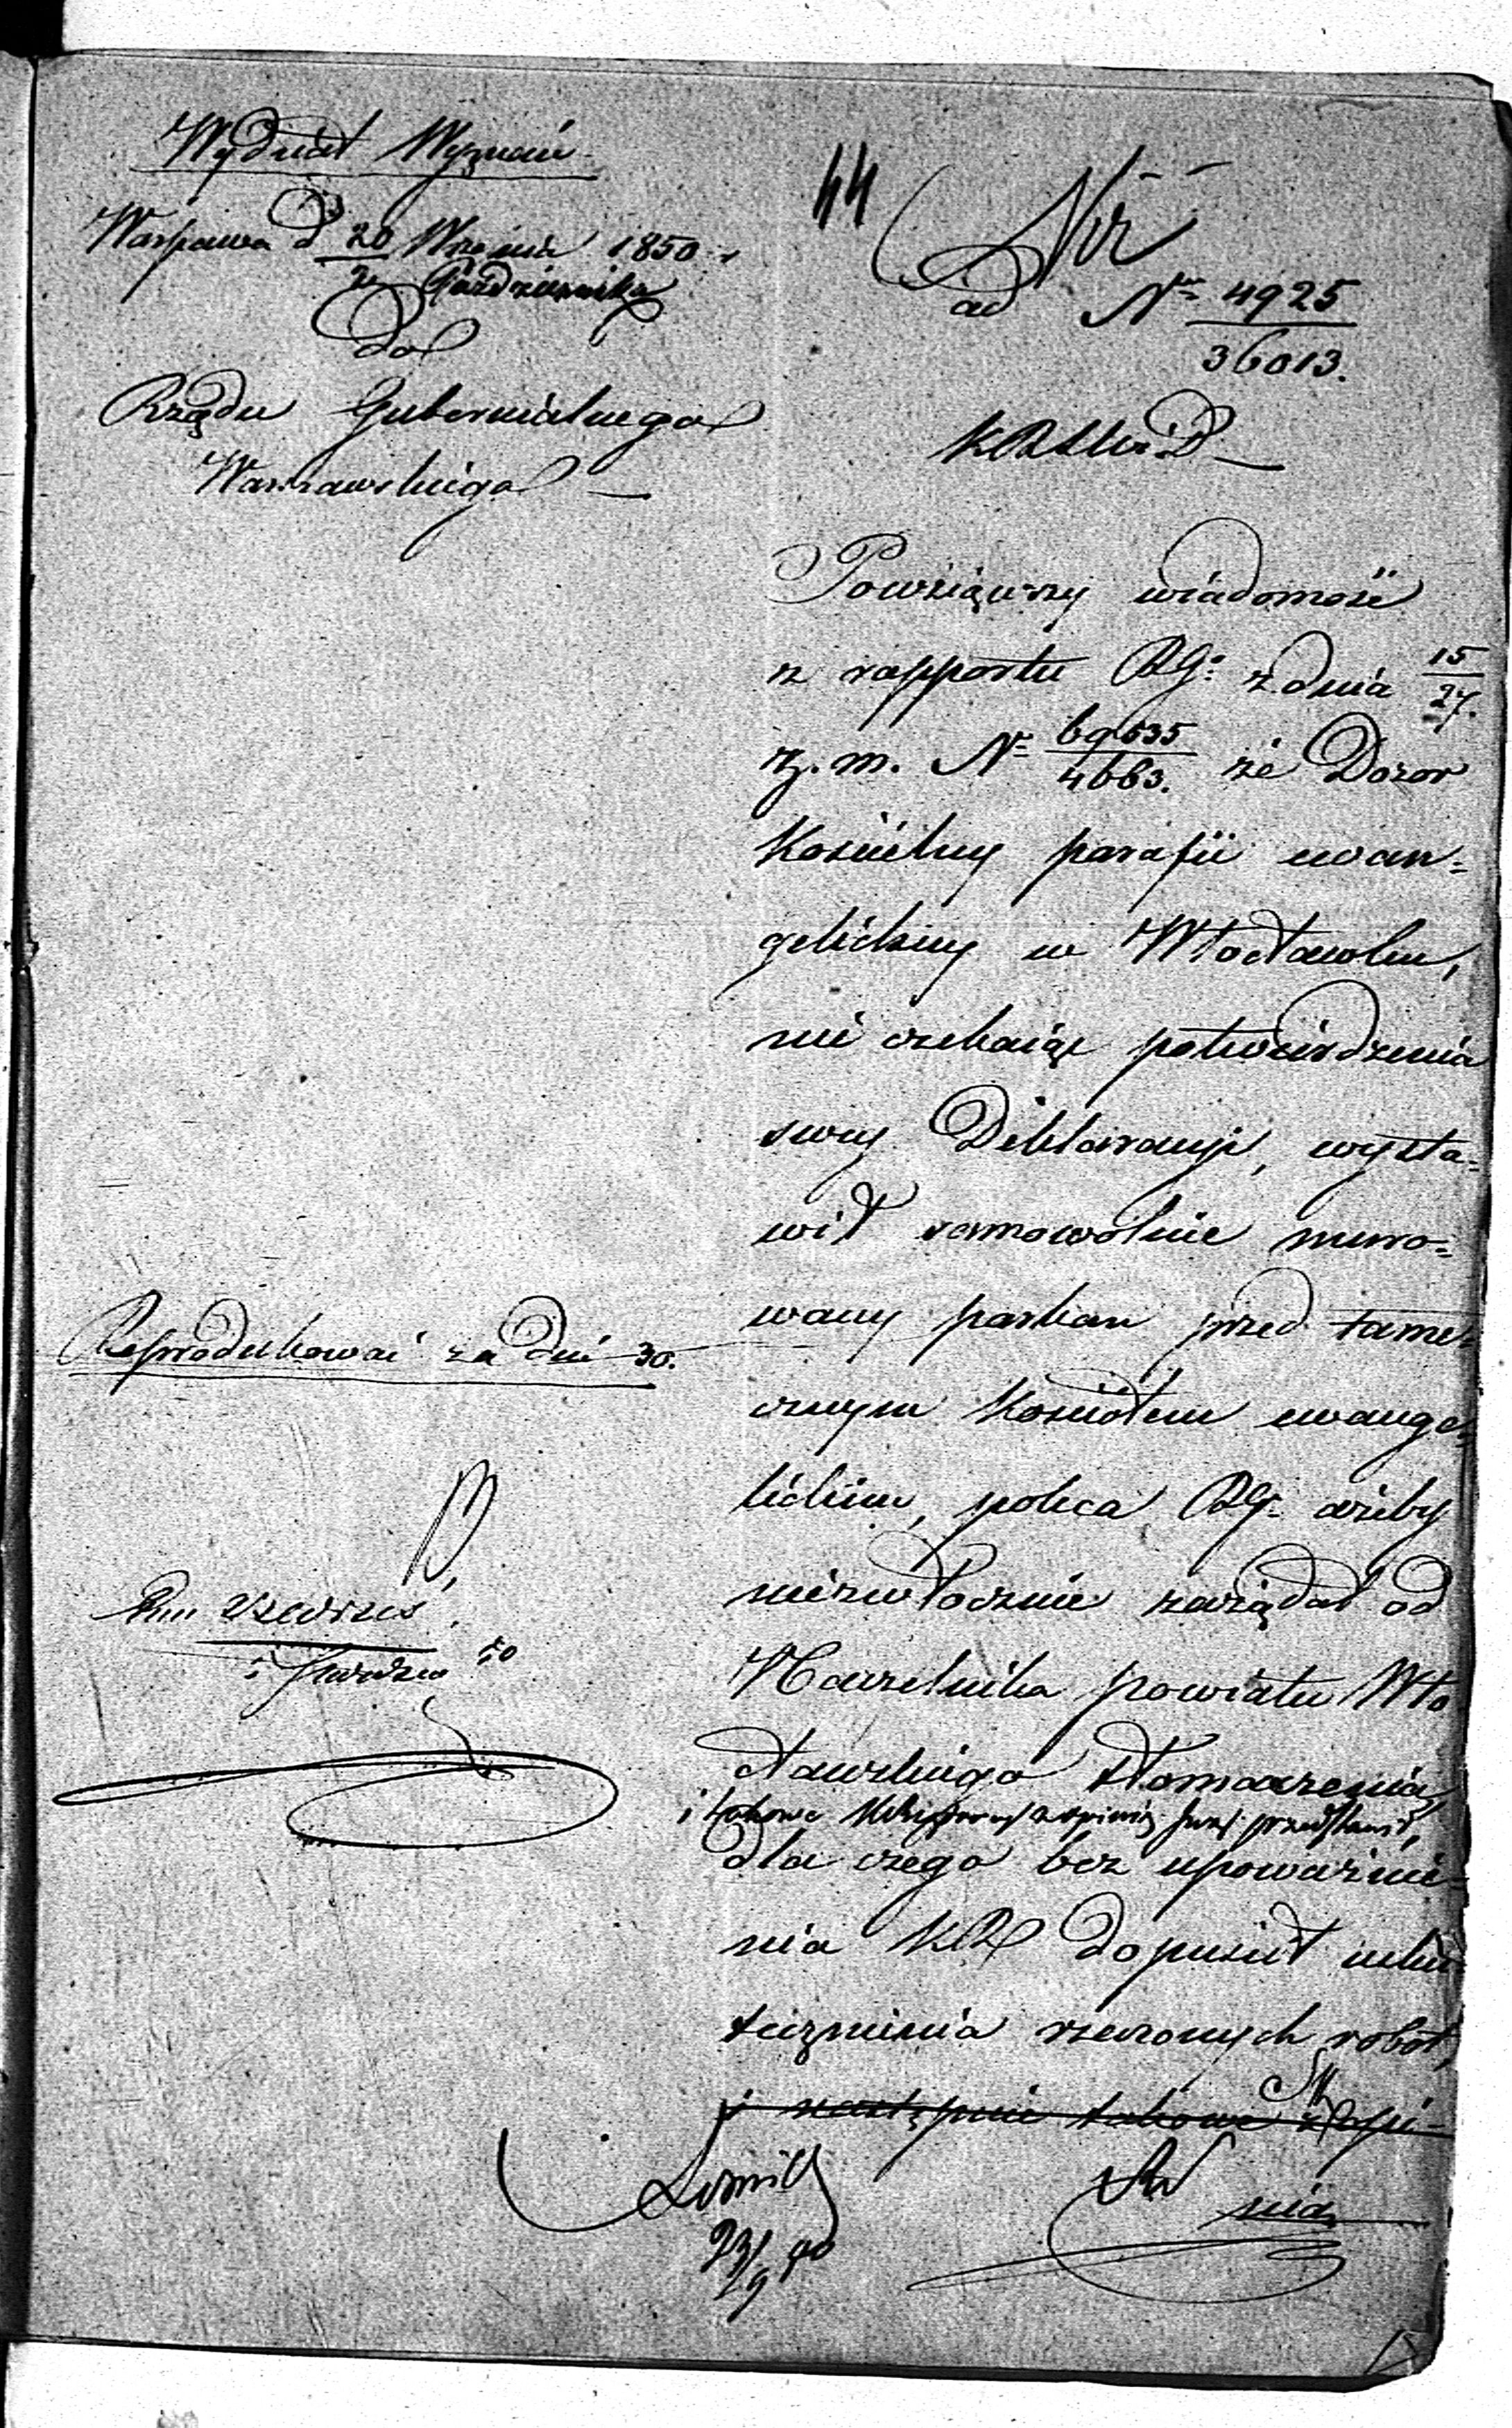 Wydział Wyznań
Warszawa d 20 Września 1850 r
2 Października
do
Rządu Gubernialnego
Warszawskiego —
44
Nr
ad Nr 4925
36013.
KRSWiD —
Powziąwszy wiadomość
z rapportu RG: z dnia 15
27.
z. m. Nr 69635
4663. że Dozor
Kościelny parafii ewan=
gelickiey w Włocławku,
nie czekaiąc potwierdzenia
swey Deklaracyi, wysta=
wił samowolnie muro=
wany parkan przed tame=
cznym Kościołem ewange=
lickim, poleca RG. ażeby
niezwłocznie zażądał od
Naczelnika powiatu Wło
cławskiego tłomaczenia,
i takowe przy opinii swej przedstawił,
dla czego bez upoważnie=
nia KR dopuścił usku=
tecznienia rzeczonych robot,
i następnie takowe z opi=
nią
Reprodukować za dni 30.
23/9 50